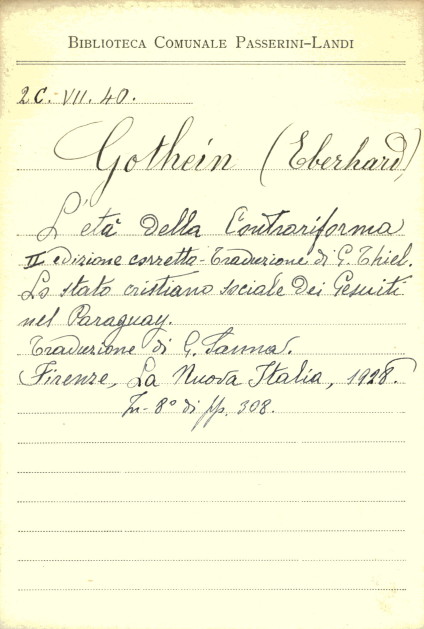 BIBLIOTECA COMUNALE PASSERINI-LANDI
2C.-VII.40.
Gothein (Eberhard)
L'età della Contrariforma
II edizione corretta - Traduzione di G. Thiel.
Lo stato cristiano sociale dei Gesuiti
nel Paraguay.
Traduzione di G. Sanna.
Firenze, La Nuova Italia, 1928.
In-8° di pp. 308.